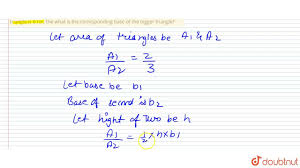 the what is the corresponding base of the bigger triangle?
Let area of triangles be A1 & A2
A1/A2 = 2/3
Let base be b1
Base of second is b2
Let hight of Two be h
A1/A2 = 1/2 × h × b1
doubtnut